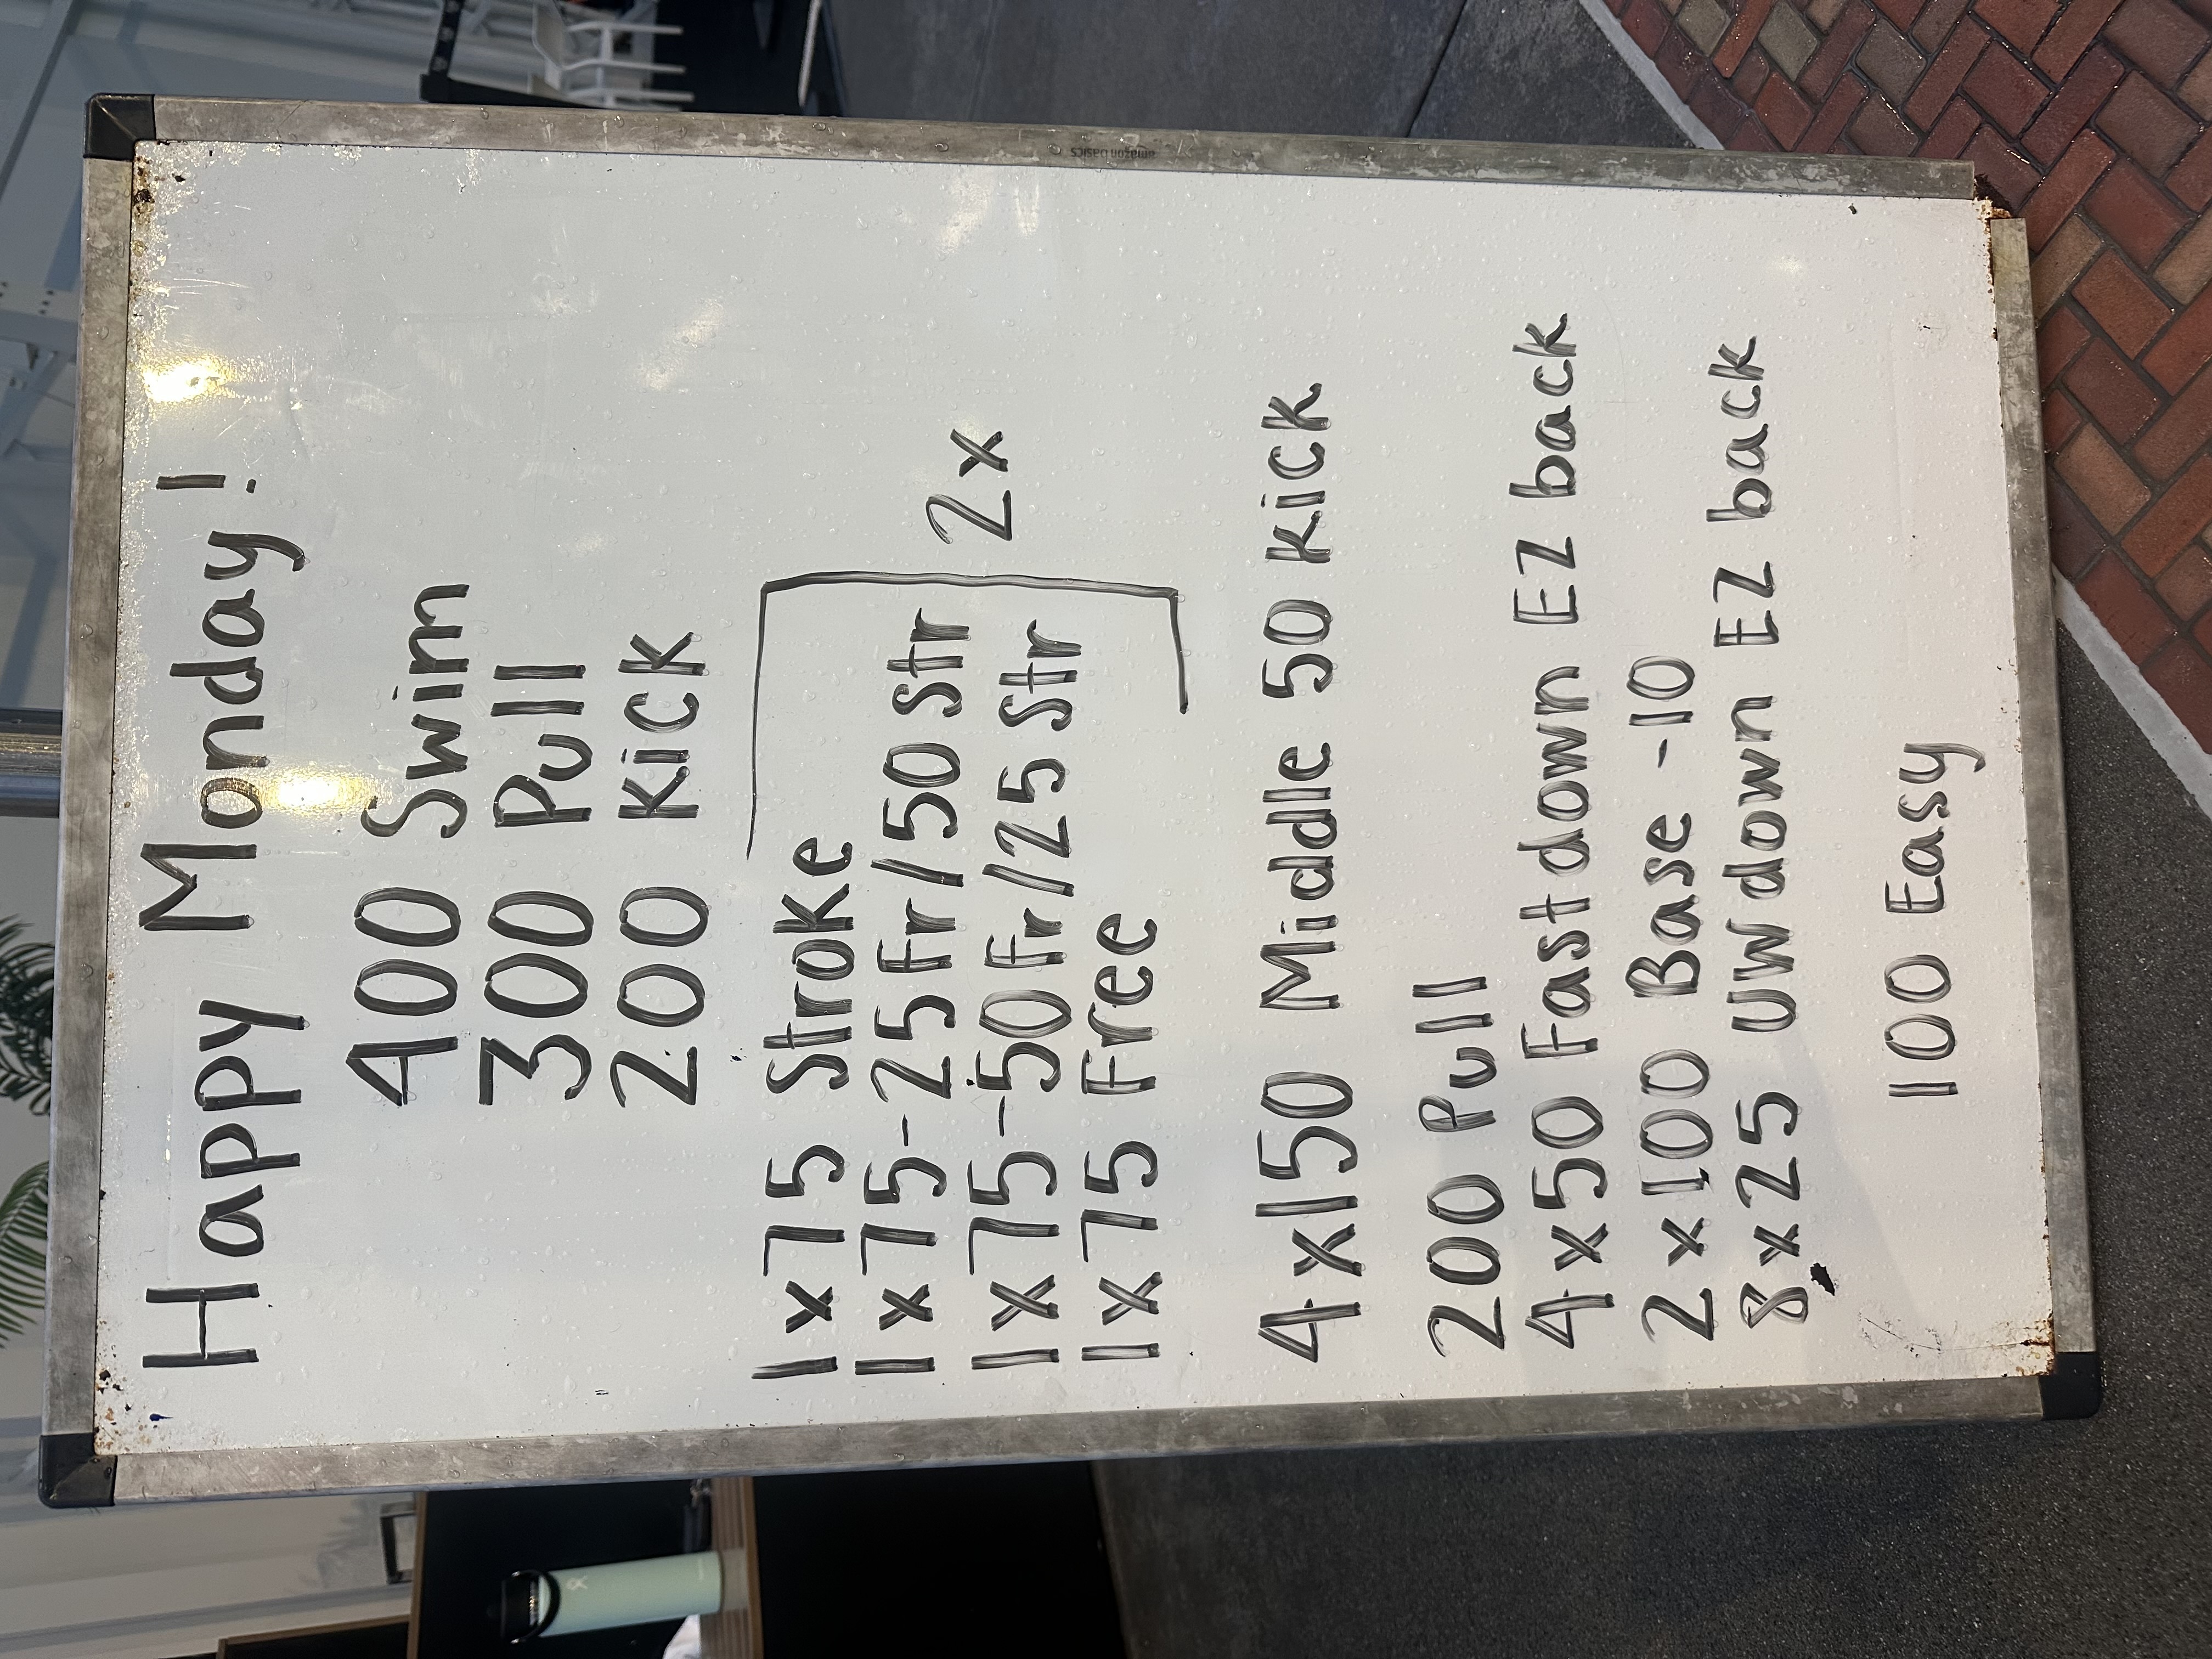 Happy Monday!
400 Swim
300 Pull
200 Kick
1x75 Stroke
1x75-25Fr/50 Str
1x75-50Fr/25 Str
1x75 Free
2x
4x150 Middle 50 Kick
200 Pull
4x50 Fast down EZ back
2x100 Base -10
8x25 UW down EZ back
100 Easy
amazon basics